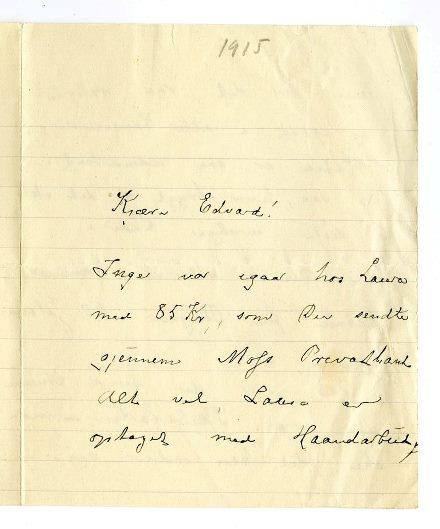 1915
Kjære Edvard!
Inger var igaar hos Laura
med 85 Kr, som Du sendte
gjennem Moss Privatbank
Alt vel, Laura er
optaget med Haandarbeide